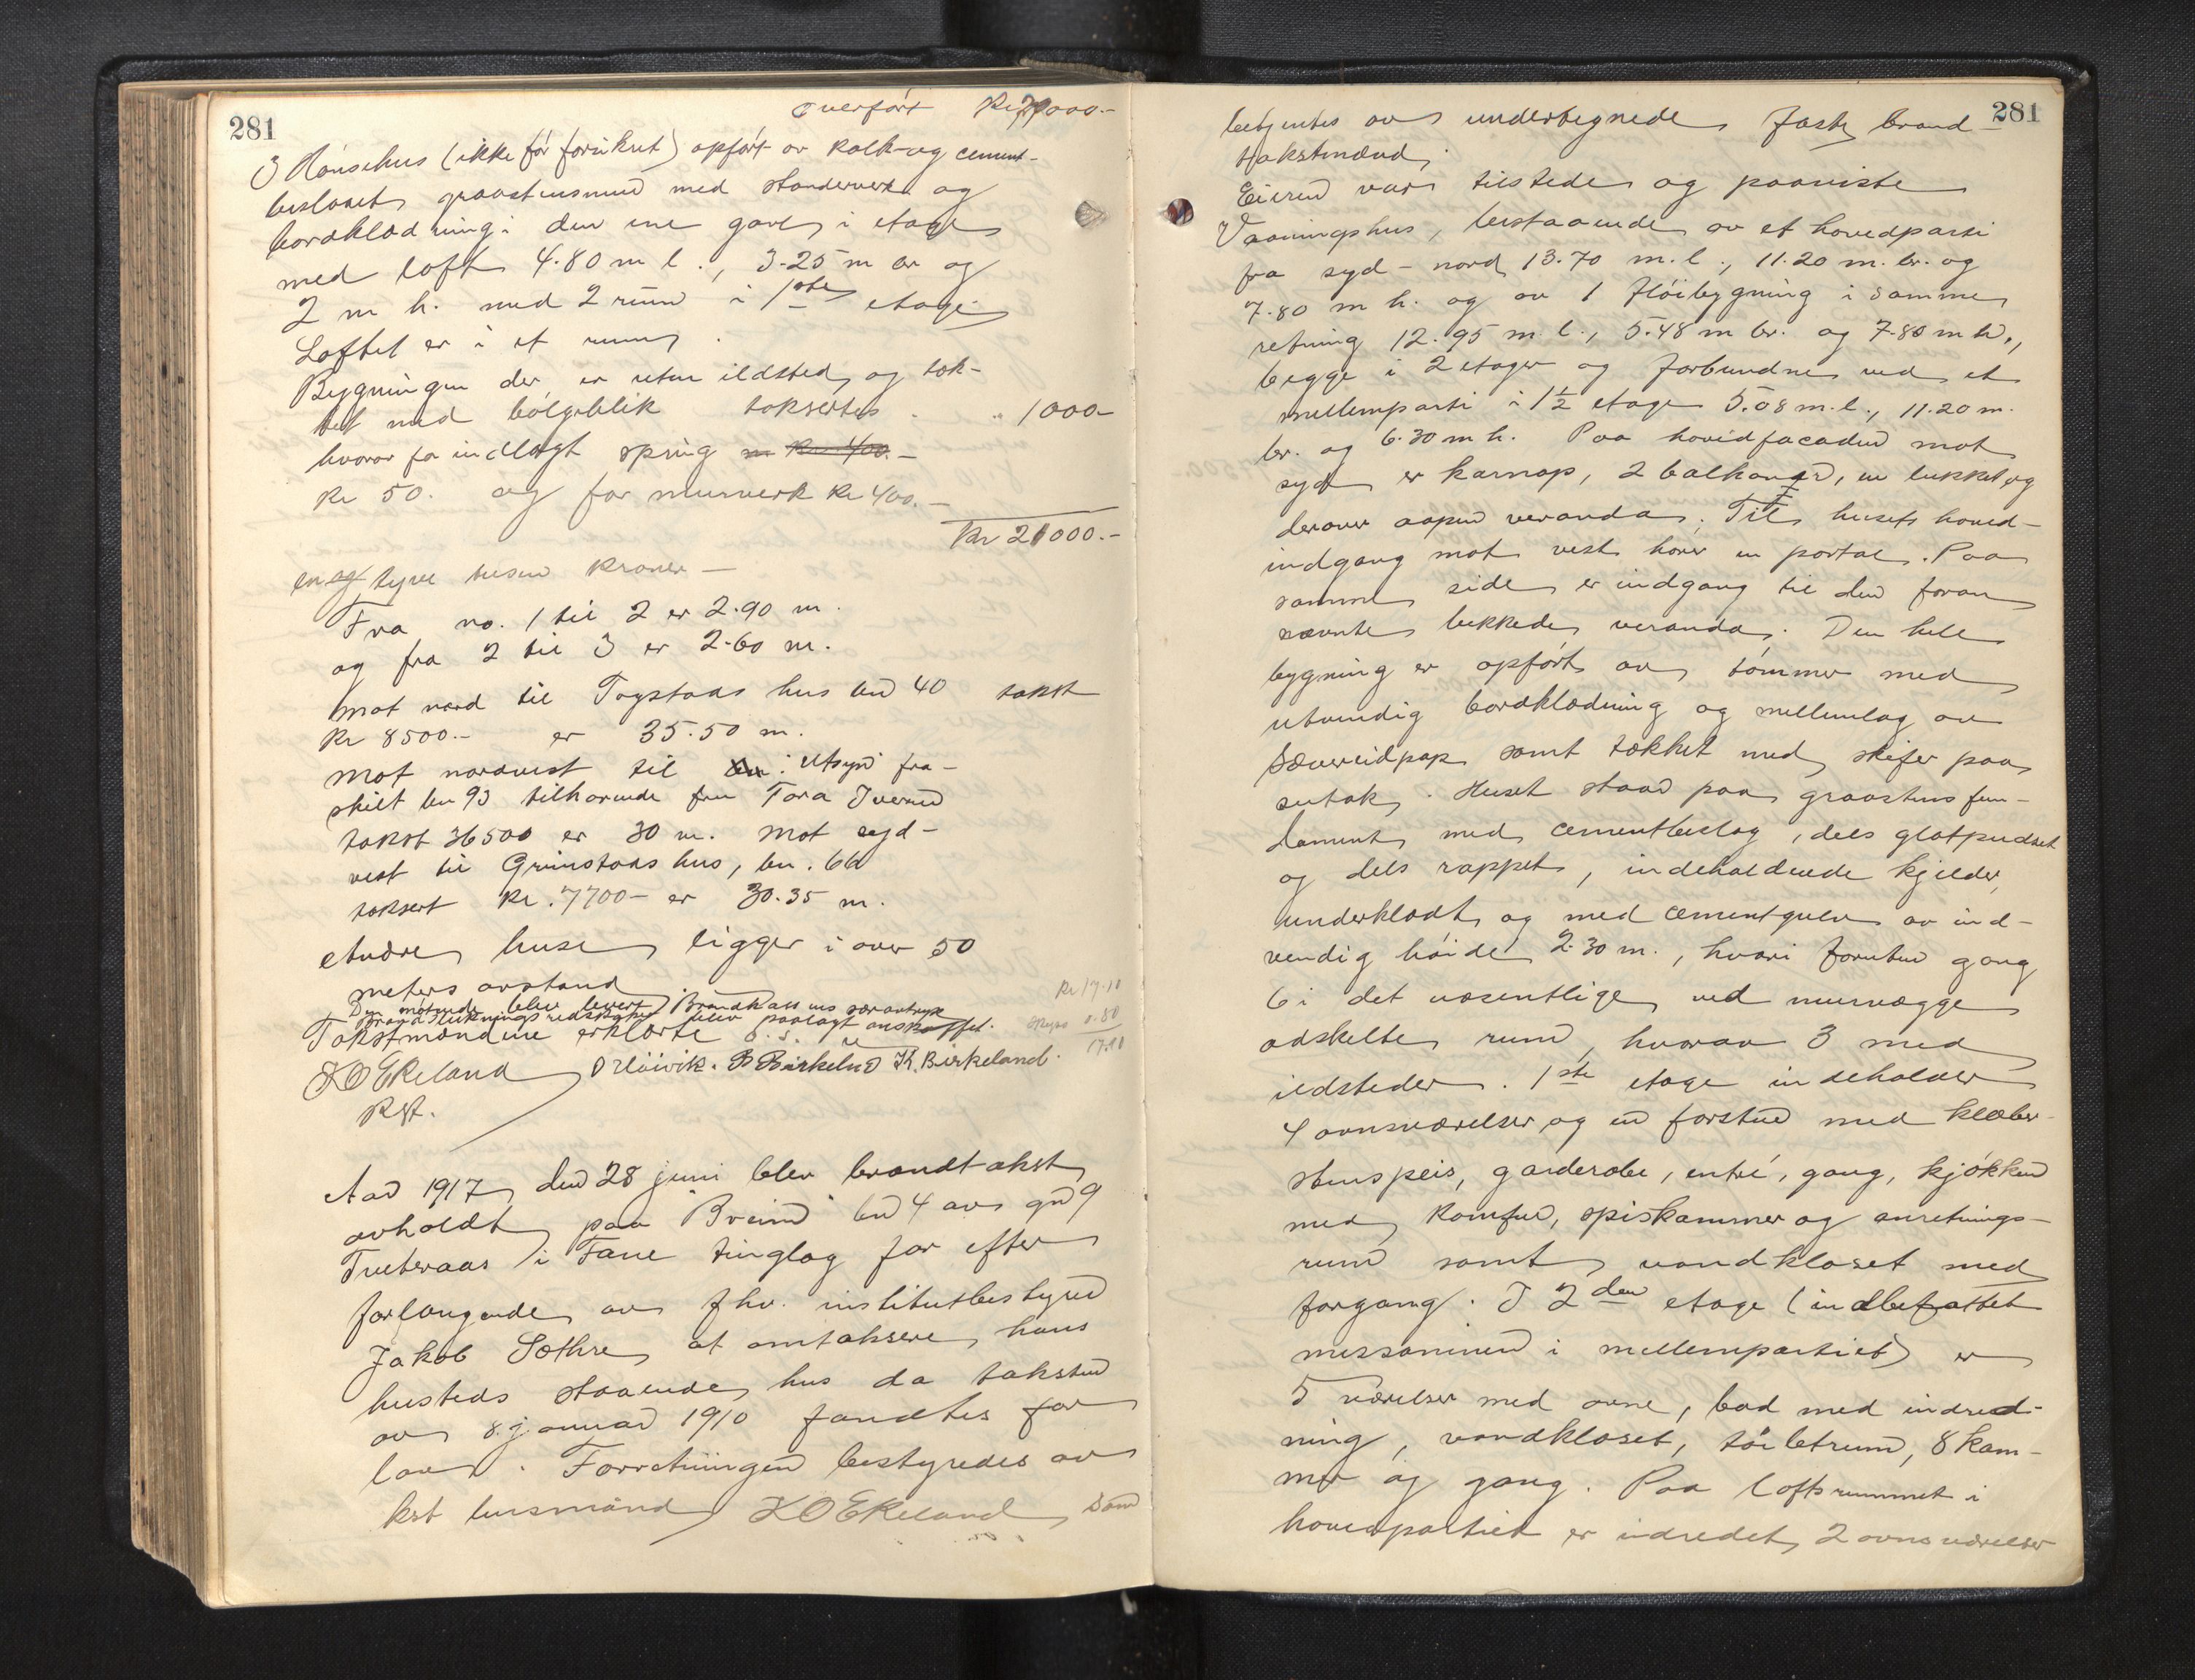 281
Overført Kr 20000.-
3 Hønsehus (ikke før forsikret) opført av kalk- og cement-
beslaaet graastensmur med standerverk og
bordklædning i den ene gavl i etage
med loft 4.80 m l., 3.25 m br og
2 m h. med 2 rum i 1ste etage
Loftet er i et rum.
Bygningen der er uten ildsted og tæk-
ket med bølgeblik taksertes " 1000-
hvorav for indlagt spring
Kr 50. og for murverk Kr 400.-
Kr 21000.-
en og tyve tusen kroner -
Fra no. 1 til 2 er 2.90 m.
og fra 2 til 3 er 2.60 m.
Mot nord til Togstads hus bn 40 takst
Kr 8500.- er 35.50 m.
Mot nordvest til Utsyn fra-
skilt bn 93 tilhørende fru Tora Iversen
takst 36500 er 30 m. Mot syd-
vest til Grimstads hus, bn. 66
taksert Kr. 7700- er 30.35 m.
Andre huse ligger i over 50
meters avstand
Den møtende blev levert Brandkassens særavtryk
Brandslukningsredskaper blev paalagt anskaffet.
Takstmændene erklærte
Kr 17.10
Skyss 0.80
17.90
K O Ekeland O Høivik. B Birkeland K. Birkeland.
Kst.
Aar 1917 den 28 juni blev brandtakst
avholdt paa "Breim" bn 4 av gn 9
Tveteraas i Fane tinglag for efter
forlangende av fhv. institutbestyrer
Jakob Sæthre at omtaksere hans
husteds staaende hus da taksten
av 8. januar 1910 fandtes for
lav. Forretningen bestyredes av
kst lensmand K O Ekeland som
281
betjentes av undertegnede faste brand-
takstmænd.
Eieren var tilstede og paaviste
Vaaningshus, bestaaende av et hovedparti
fra syd - nord 13.70 m. l., 11.20 m. br. og
7.80 m h. og av 1 fløibygning i samme
retning 12.95 m. l., 5.48 m br. og 7.80 m h.,
begge i 2 etager og forbundne ved et
mellemparti i 1½ etage 5.08 m. l., 11.20 m.
br. og 6.30 m h. Paa hovedfacaden mot
syd er karnap, 2 balkonger, en lukket og
derover aapen veranda. Til husets hoved-
indgang mot vest hører en portal. Paa
samme side er indgang til den foran
nævnte lukkede veranda. Den hele
bygning er opført av tømmer med
utvendig bordklædning og mellemlag av
Sævereidpap samt tækket med skifer paa
sutak. Huset staar paa graastens fun-
dament med cementbeslag, dels glatpudset
og dels rappet, indeholdende kjelder,
underklædt og med cementgulv av ind-
vendig høide 2.30 m., hvori foruten gang
6 i det væsentlige ved murvægge
adskilte rum, hvorav 3 med
ildsteder. 1ste etage indeholder
4 ovnsværelser og en forstue med kleber-
stenspeis, garderobe, entré, gang, kjøkken
med komfur, spiskammer og anretnings-
rum samt vandkloset med
forgang. I 2den etage (indbefattet
messaninen i mellempartiet) er
5 værelser med ovne, bad med indred-
ning, vandkloset, toiletrum, 8 kam-
mer og gang. Paa loftsrummet i
hovedpartiet er indredet 2 ovnsværelser